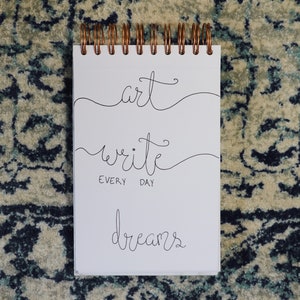 art
write
EVERY DAY
dreams